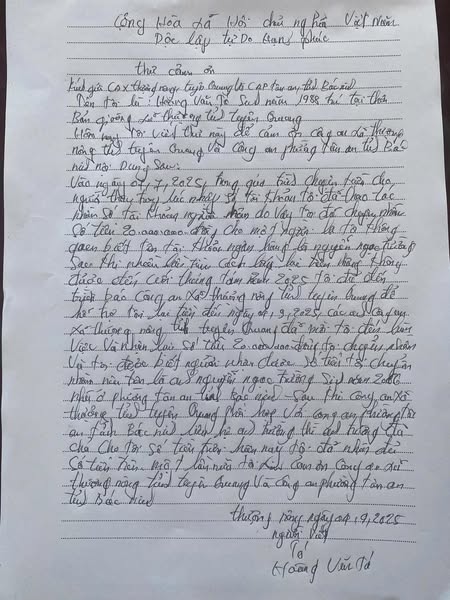 Cộng Hòa Xã Hội chủ nghĩa Việt Nam
Độc lập tự Do Hạnh phúc
thư cảm ơn
Kính gửi CA xã thượng nông tuyên Quang và CAP tân an, tỉnh Bắc ninh
Tên tôi là: Hoàng Văn Tá Sinh năm 1988 trú tại thôn
Bản giồng xã thượng tỉnh tuyên Quang
Hôm nay tôi viết thư này để cảm ơn công an xã thượng
nông tỉnh tuyên Quang và Công an phường tân an tỉnh Bắc
ninh nội Dung Sau:
Vào ngày 01, 7, 2025, trong quá trình chuyển tiền cho
người thân trong lúc nhập số tài khoản tôi đã thao tác
nhầm số tài khoản người nhận do vậy tôi đã chuyển nhầm
số tiền 20.000.000 đồng cho một người lạ tôi không
quen biết tên tài khoản ngân hàng là nguyễn ngọc trường
Sau khi nhiều lần tìm cách lấy lại tiền nhưng không
được đến cuối tháng tám năm 2025 tôi đã đến
trình báo công an xã thượng nông tỉnh tuyên Quang để
hỗ trợ tôi lấy lại đến ngày 01, 9, 2025, các anh công an
xã thượng nông tỉnh tuyên Quang đã mời tôi đến làm
việc và nhận lại số tiền 20.000.000 đồng tôi chuyển nhầm
Và tôi được biết người nhận được số tiền tôi chuyển
nhầm nêu trên là anh nguyễn ngọc trường Sinh năm 2006
nhà ở phường tân an tỉnh Bắc ninh - Sau khi công an xã
thượng tỉnh tuyên Quang phối hợp với công an phường tân
an tỉnh Bắc ninh liên hệ anh trường thì anh trường đã
trả cho tôi số tiền trên hiện nay tôi đã nhận đủ
Số tiền trên một lần nữa tôi xin cảm ơn Công an xã
thượng nông tỉnh tuyên Quang và công an phường tân an
tỉnh Bắc ninh
thượng nông ngày 04, 9, 2025
người viết
Tá
Hoàng Văn Tá